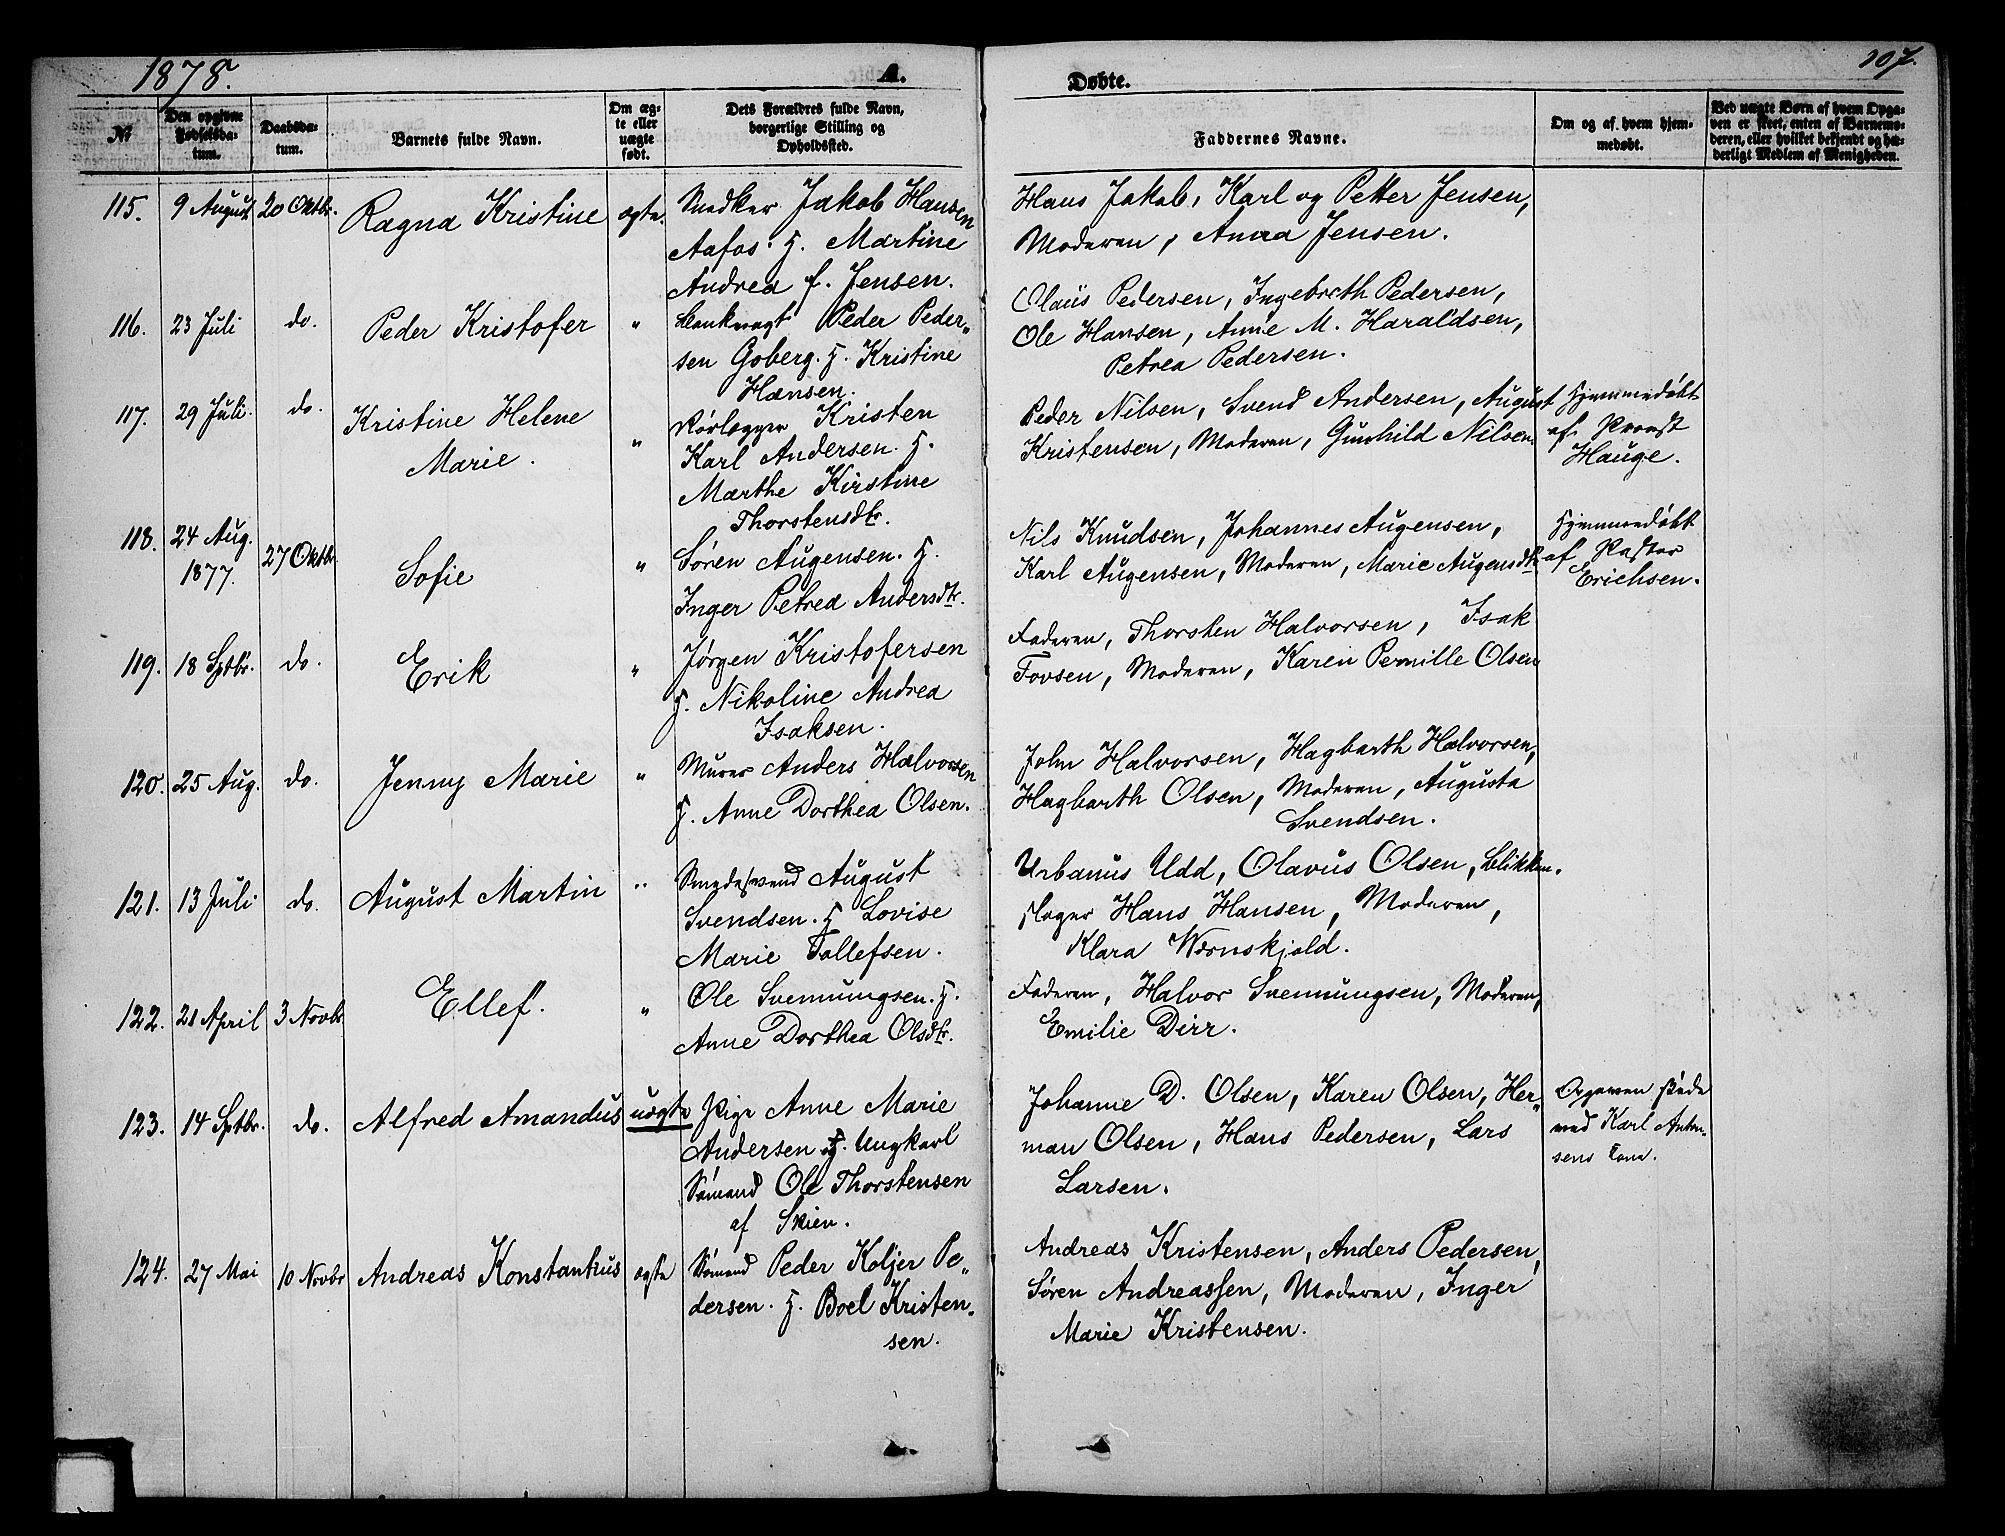 1878.
A.
Døbte.
107.
№
Den opgivne Fødselsdatum.
Daabsdatum.
Barnets fulde Navn.
Om ægte eller uægte født.
Dets Forældres fulde Navn, borgerlige Stilling og Opholdssted.
Faddernes Navne.
Om og af hvem hjemmedøbt.
Ved uægte Børn af hvem Opgaven er skeet, enten af Barnemoderen, eller hvilket bekjendt og hæderligt Medlem af Menigheden.
115. 9 August 20 Oktbr. Ragna Kristine ægte.
Jakob Hansen
Aafos. H. Martine
Andrea f. Jensen.
Hans Jakob, Karl og Petter Jensen,
Moderen, Anna Jensen.
116. 23 Juli do. Peder Kristofer "
Bankvagt Peder Peder-
sen Goberg. H. Kristine
Hansen.
Olaüs Pedersen, Ingeborth Pedersen,
Ole Hansen, Anne M. Haraldsen,
Petrea Pedersen.
117. 29 Juli. do. Kristine Helene
Marie. "
Rørlægger Kristen
Karl Andersen. H.
Marthe Kirstine
Thorstensdtr.
Peder Nilsen, Svend Andersen, August
Kristensen, Moderen, Gunhild Nilsen.
Hjemmedøbt
af Provst
Hauge.
118. 24 Aug.
1877. 27 Oktbr. Sofie "
Søren Augensen. H.
Inger Petrea Andersdtr.
Nils Knudsen, Johannes Augensen,
Karl Augensen, Moderen, Marie Augensdtr.
Hjemmedøbt
af Pastor
Erichsen.
119. 18 Sptbr. do. Erik "
Jørgen Kristofersen
H. Nikoline Andrea
Isaksen.
Faderen, Thorsten Halvorsen, Isak
Tovsen, Moderen, Karen Pernille Olsen
120. 25 Aug. do. Jenny Marie "
Murer Anders Halvorsen
H. Anne Dorthea Olsen.
John Halvorsen, Hagbarth Halvorsen,
Hagbarth Olsen, Moderen, Augusta
Svendsen.
121. 13 Juli do. August Martin "
Smedesvend August
Svendsen. H Lovise
Marie Tollefsen.
Urbanus Udd, Olavus Olsen, Blikken-
slager Hans Hansen, Moderen,
Klara Wernskjold.
122. 21 April 3 Novbr Ellef. "
Ole Svennungsen. H.
Anne Dorthea Olsdtr.
Faderen, Halvor Svennungsen, Moderen,
Emilie Dirr.
123. 14 Sptbr. do. Alfred Amandus uægte
Pige Anne Marie
Andersen H. Ungkarl
Sømand Ole Thorstensen
af Skien.
Johanne D. Olsen, Karen Olsen, Her-
man Olsen, Hans Pedersen, Lars
Larsen.
Opgaven skede
ved Karl Anton-
sens Kone.
124. 27 Mai 10 Novbr Andreas Konstantius ægte
Sømand Peder Koljer Pe-
dersen. H. Boel Kristen-
sen.
Andreas Kristensen, Anders Pedersen,
Søren Andreassen, Moderen, Inger
Marie Kristensen.